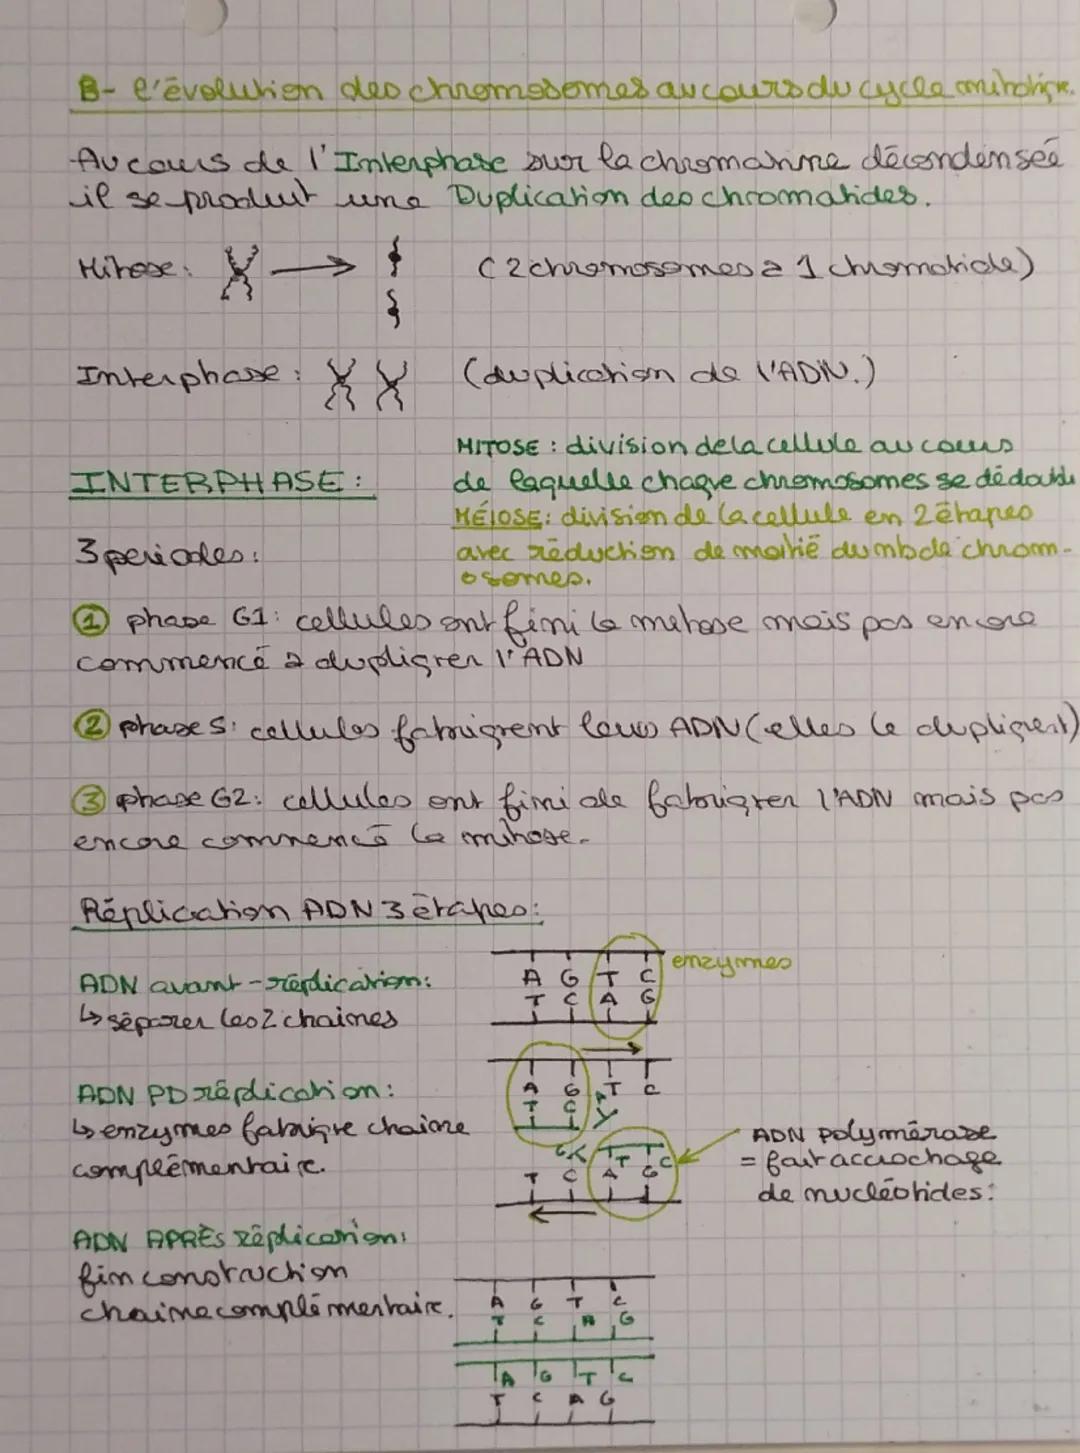 B- l'évolution des chromosomes au cours du cycle mitotique.
Au cours de l'Interphase sur la chromatine décondensée
il se produit une Duplication des chromatides.
Mitose: (2 chromosomes à 1 chromatide)
Interphase: (duplication de l'ADN.)
INTERPHASE:
MITOSE: division de la cellule au cours
de laquelle chaque chromosomes se dédouble
MÉIOSE: division de la cellule en 2 étapes
avec réduction de moitié du nb de chrom-
osomes.
3 periodes:
1 phase G1: cellules ont fini la mitose mais pas encore
commencé à dupliquer l'ADN
2 phase S: cellules fabriquent leurs ADN (elles le dupliquent)
3 phase G2: cellules ont fini de fabriquer l'ADN mais pas
encore commencé la mitose.
Réplication ADN 3 étapes:
enzymes
ADN avant-réplication:
↳ séparer les 2 chaines
A G T C
T C A G
ADN PD réplication:
↳ enzymes fabrique chaine
complémentaire.
A G T C
T C
T T C
T C A G
ADN polymérase
= fait accrochage
de nucléotides.
ADN APRÈS réplication:
fin construction
chaine complémentaire.
A G T C
T C A G
A G T C
T C A G